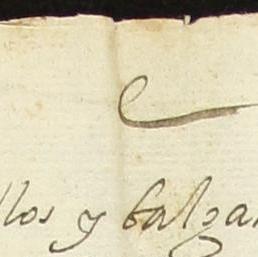 llos y balza